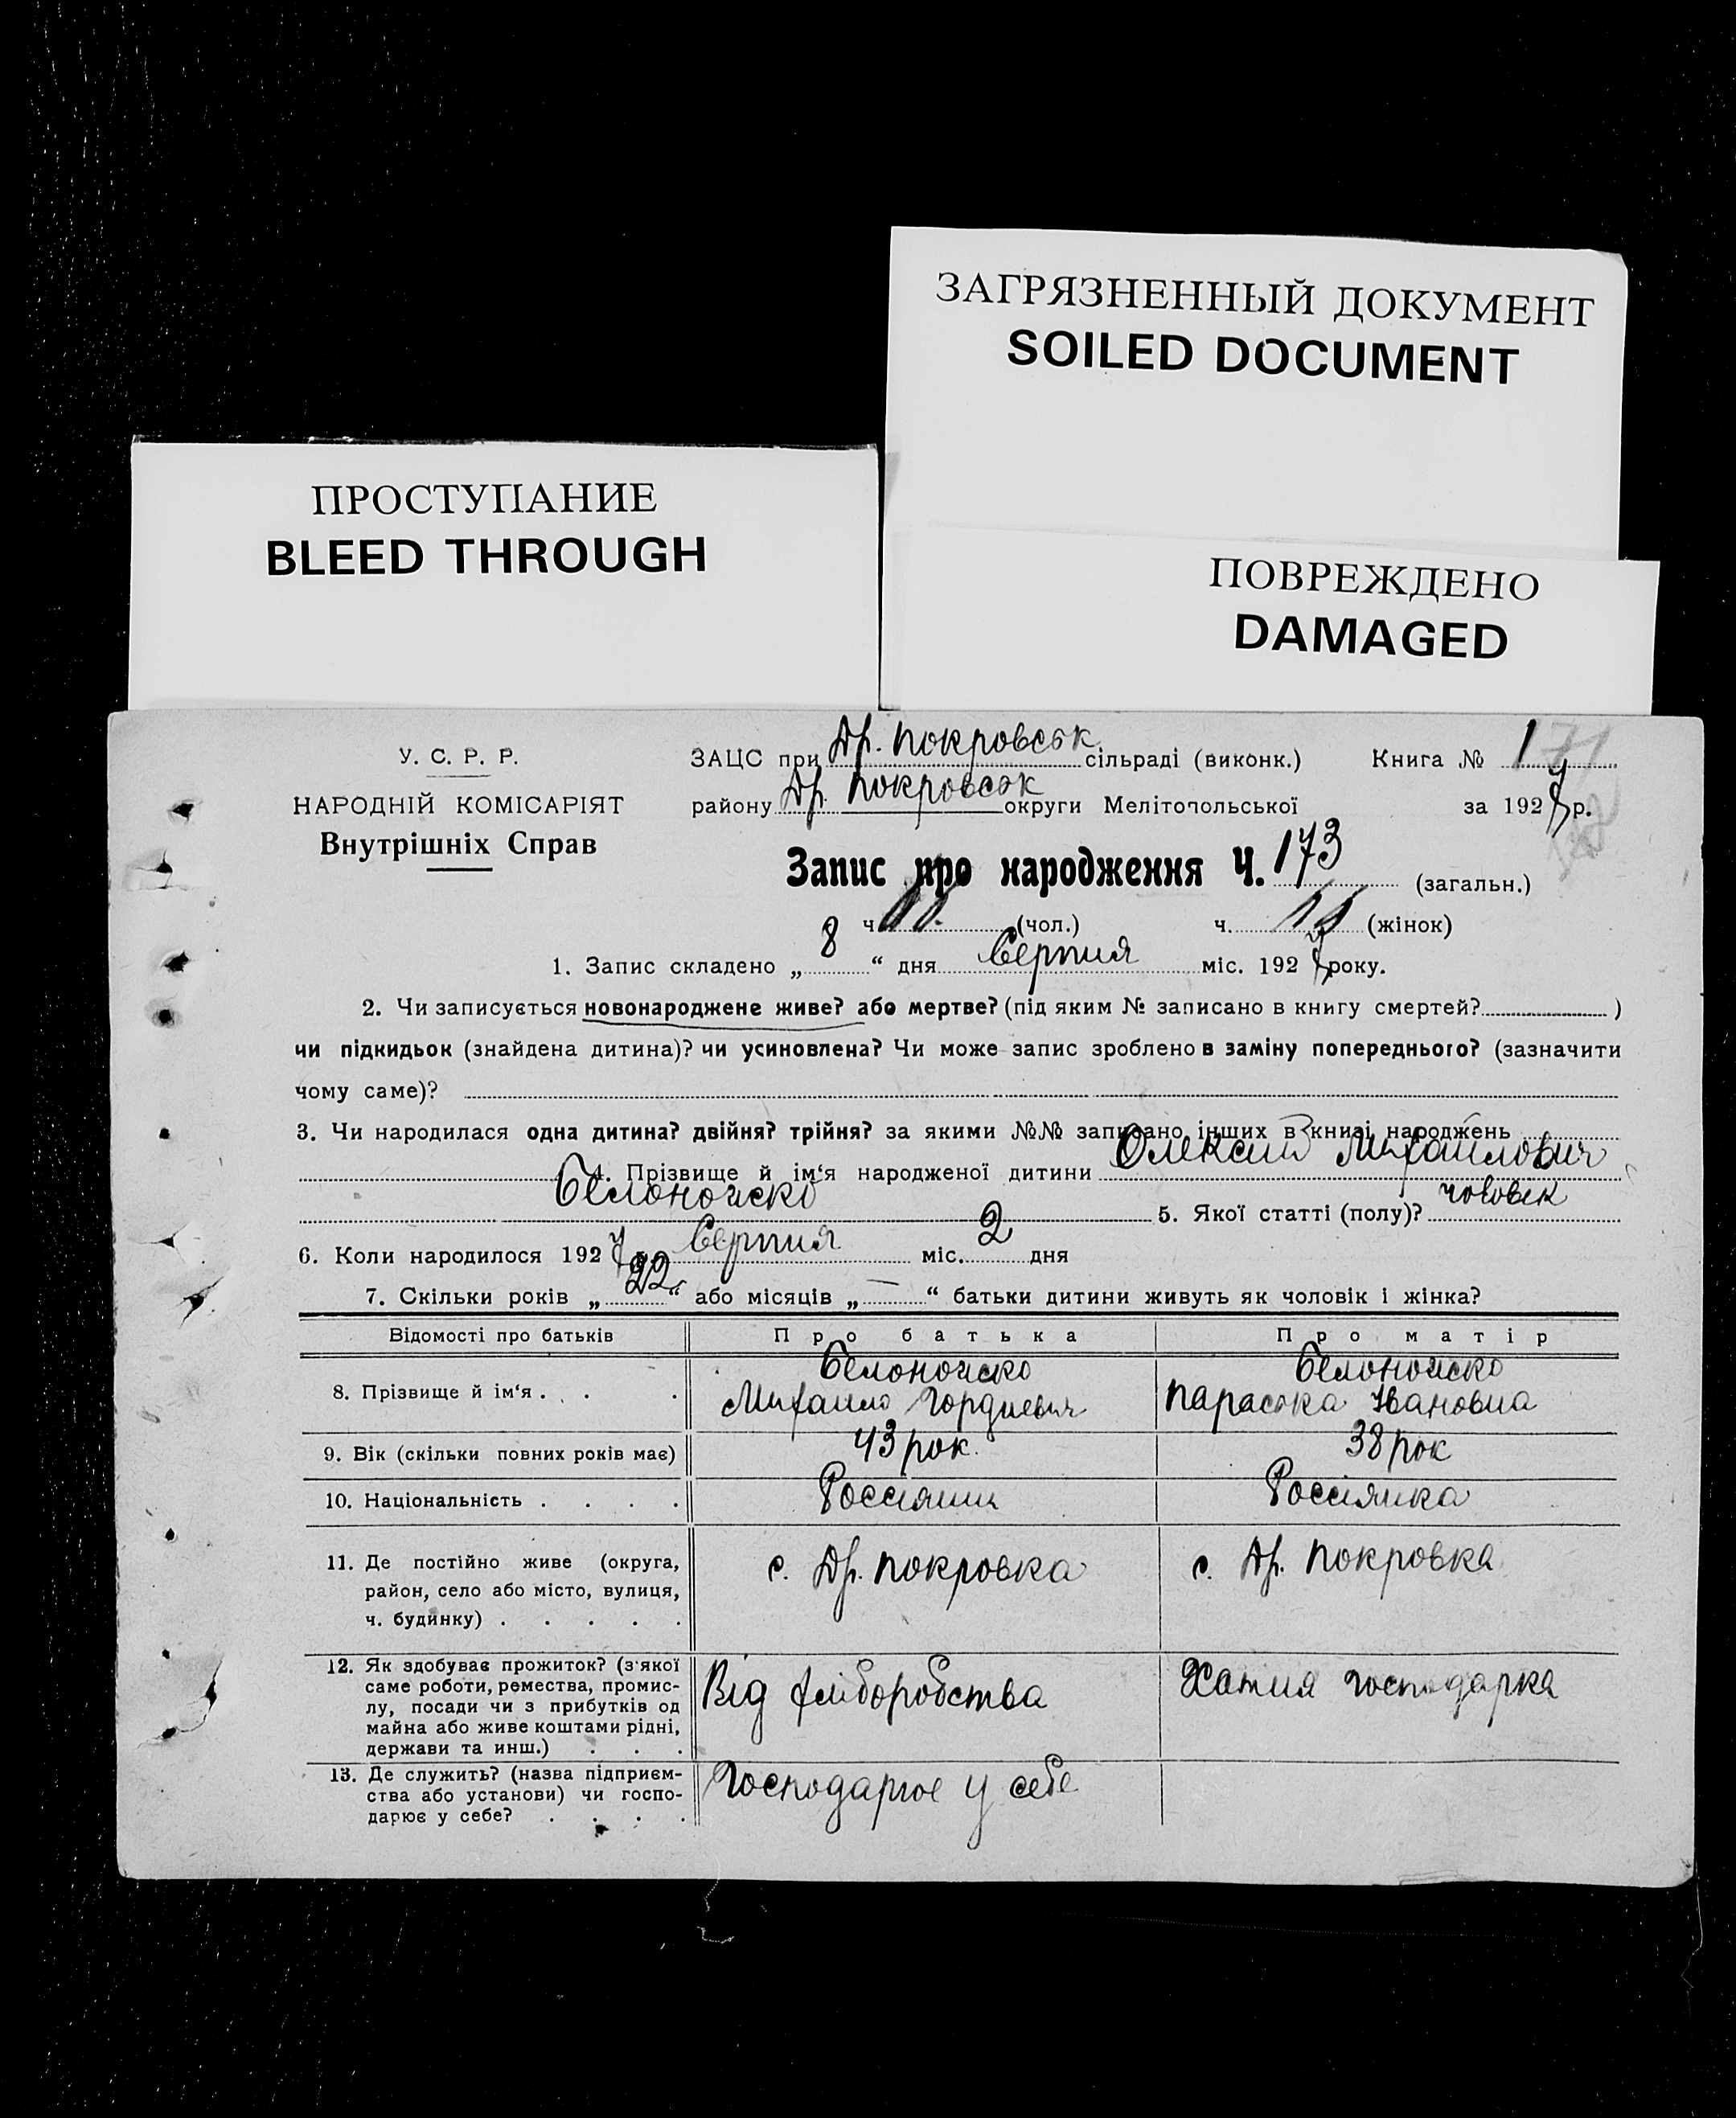 ЗАГРЯЗНЕННЫЙ ДОКУМЕНТ
SOILED DOCUMENT
ПРОСТУПАНИЕ
BLEED THROUGH
ПОВРЕЖДЕНО
DAMAGED
У. С. Р. Р.
НАРОДНІЙ КОМІСАРІЯТ
Внутрішніх Справ
ЗАЦС при Др. Покровськ сільраді (виконк.) Книга № 1
району Др. Покровськ округи Мелітопольської за 1927 р.
Запис про народження Ч. 173 (загальн.)
ч. (чол.) ч. (жінок)
1. Запис складено „ 8 “ дня Серпня міс. 1927 року.
2. Чи записується новонароджене живе? або мертве? (під яким № записано в книгу смертей? )
чи підкидьок (знайдена дитина)? чи усиновлена? Чи може запис зроблено в заміну попереднього? (зазначити
чому саме)?
3. Чи народилася одна дитина? двійня? трійня? за якими №№ записано інших в книзі народжень
4. Прізвище й ім‘я народженої дитини Олексій Михайлович
5. Якої статті (полу)? чоловек
6. Коли народилося 1927 р. Серпня міс. 2 дня
7. Скільки років „ 22 “ або місяців „ — “ батьки дитини живуть як чоловік і жінка?
Відомості про батьків Про батька Про матір
8. Прізвище й ім‘я . . .
Михаило Гордиевич
Параска Ивановна
9. Вік (скільки повних років має) 43 рок. 38 рок
10. Національність . . . . Россіянин Россіянка
11. Де постійно живе (округа,
район, село або місто, вулиця,
ч. будинку) . . . . .
с. Др. Покровка
с. Др. Покровка
12. Як здобуває прожиток? (з якої
саме роботи, ремества, промис-
лу, посади чи з прибутків од
майна або живе коштами рідні,
держави та инш.) . . .
Від хліборобства
Хатня господарка
13. Де служить? (назва підприєм-
ства або установи) чи госпо-
дарює у себе? . . . .
Господарює у себе